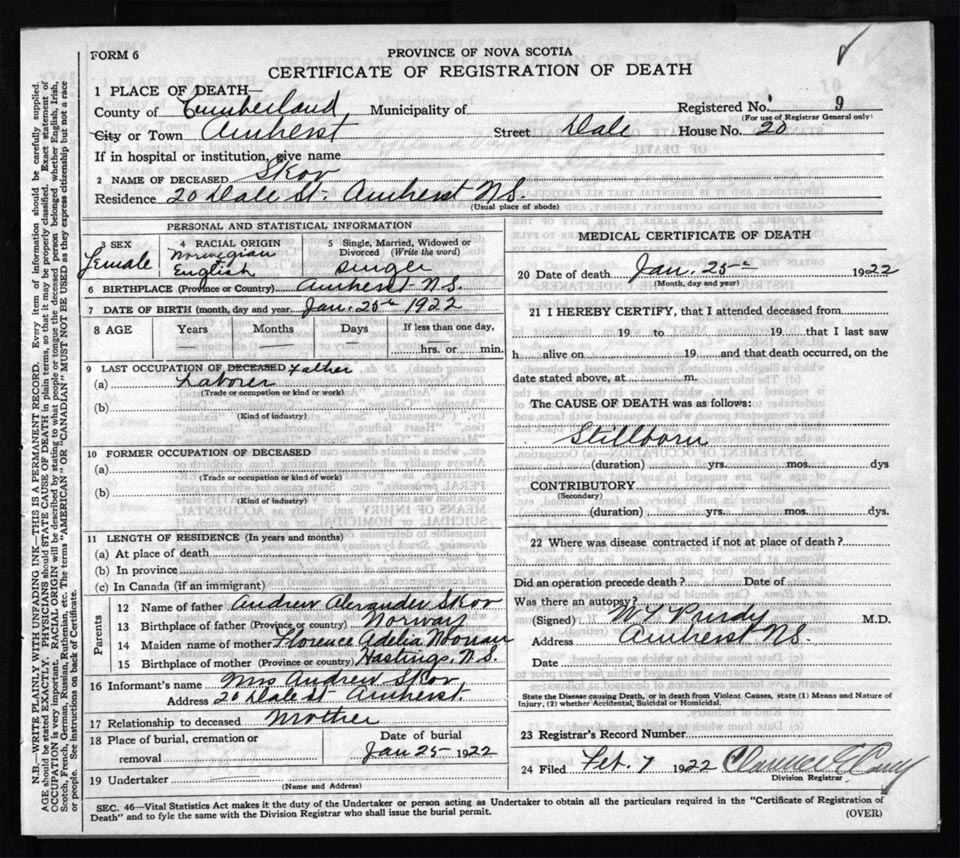 FORM 6
PROVINCE OF NOVA SCOTIA
CERTIFICATE OF REGISTRATION OF DEATH
1 PLACE OF DEATH—
County of Cumberland Municipality of Registered No. 9
(For use of Registrar General only)
City or Town Amherst Street Dale House No. 20
If in hospital or institution, give name
2 NAME OF DECEASED Skov
Residence 20 Dale St. Amherst N.S.
(Usual place of abode)
PERSONAL AND STATISTICAL INFORMATION
3 SEX
Female
4 RACIAL ORIGIN
Norwegian &
English
5 Single, Married, Widowed or
Divorced (Write the word)
6 BIRTHPLACE (Province or Country) Amherst N.S.
7 DATE OF BIRTH (month, day and year) Jan. 25th 1922
8 AGE Years Months Days If less than one day,
hrs. or min.
9 LAST OCCUPATION OF DECEASED Father
(a) Laborer
(Trade or occupation or kind or work)
(b)
(Kind of industry)
10 FORMER OCCUPATION OF DECEASED
(a)
(Trade or occupation or kind of work)
(b)
(Kind of industry)
11 LENGTH OF RESIDENCE (In years and months)
(a) At place of death
(b) In province
(c) In Canada (if an immigrant)
Parents
12 Name of father Andrew Alexander Skov
13 Birthplace of father (Province or country) Norway
14 Maiden name of mother Florence Adelia
15 Birthplace of mother (Province or country) Hastings, N.S.
16 Informant's name Mrs Andrew Skov
Address 20 Dale St Amherst.
17 Relationship to deceased Mother
18 Place of burial, cremation or
removal
Date of burial
Jan 25 1922
19 Undertaker
(Name and Address)
MEDICAL CERTIFICATE OF DEATH
20 Date of death Jan. 25th 1922
(Month, day and year)
21 I HEREBY CERTIFY, that I attended deceased from
19 to 19 that I last saw
h alive on 19 and that death occurred, on the
date stated above, at m.
The CAUSE OF DEATH was as follows:
Stillborn
(duration) yrs. mos. dys
CONTRIBUTORY
(Secondary)
(duration) yrs. mos. dys.
22 Where was disease contracted if not at place of death?
Did an operation precede death? Date of
Was there an autopsy?
(Signed) Purdy M.D.
Address Amherst N.S.
Date
State the Disease causing Death, or in death from Violent Causes, state (1) Means and Nature of
Injury, (2) whether Accidental, Suicidal or Homicidal.
23 Registrar's Record Number
24 Filed Feb. 7 1922 Clarence
Division Registrar
SEC. 46—Vital Statistics Act makes it the duty of the Undertaker or person acting as Undertaker to obtain all the particulars required in the "Certificate of Registration of
Death" and to fyle the same with the Division Registrar who shall issue the burial permit.
(OVER)
N.B.—WRITE PLAINLY WITH UNFADING INK—THIS IS A PERMANENT RECORD. Every item of information should be carefully supplied.
AGE should be stated EXACTLY. PHYSICIANS should STATE CAUSE OF DEATH in plain terms, so that it may be properly classified. Exact statement of
OCCUPATION is very important. RACIAL ORIGIN will be described by stating to what people or tongue the deceased person belonged whether English, Irish,
Scotch, French, German, Russian, Ruthenian, etc. The terms "AMERICAN" OR "CANADIAN" MUST NOT BE USED as they express citizenship but not a race
or people. See instructions on back of Certificate.